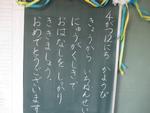 4がつ12にち かようび
きょうから いちねんせい
にゅうがくしきで
おはなしをしっかり
ききましょう。
おめでとうございます